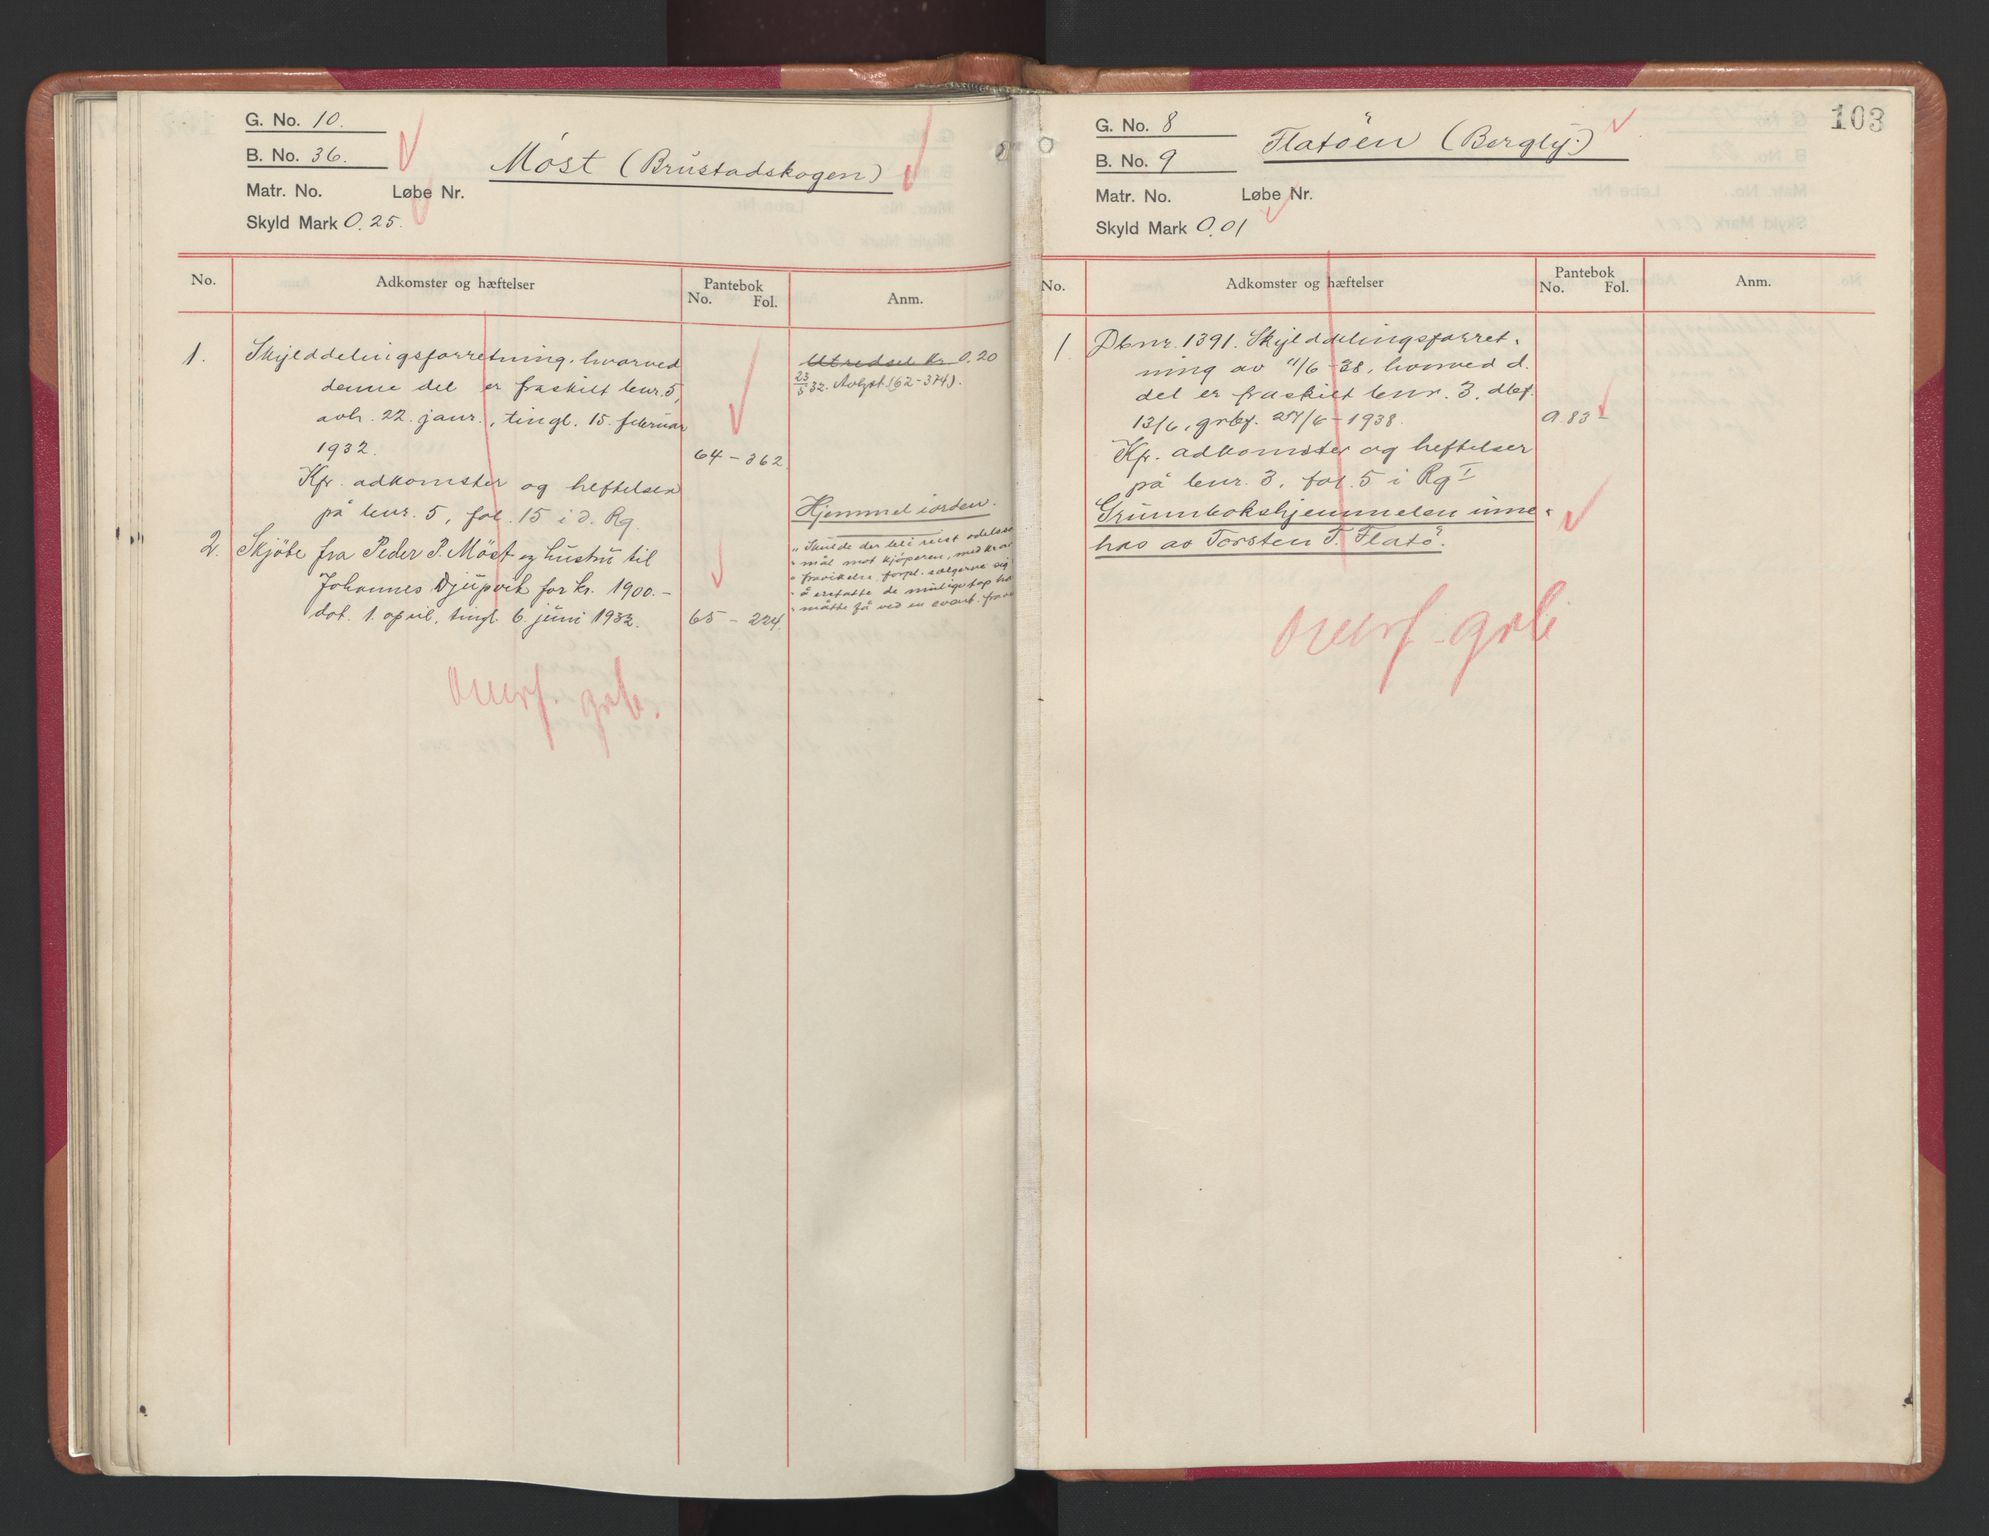 G. No. 10.
B. No. 36.
Matr. No. Løbe Nr.
Skyld Mark 0,25.
Möst (Brustadskogen)
No. Adkomster og hæftelser Pantebok No. Fol. Anm.
1. Skylddelingsforretning, hvorved
denne del er fraskilt bnr. 5,
avh. 22. janr., tingl. 15. februar
1932. 64 – 362.
Kfr. adkomster og heftelser
på bnr. 5, fol. 15 i d. Rg.
2. Skjöte fra Peder P. Möst og hustru til
Johannes Djupvik for kr. 1900.-
dat. 1. april, tingl. 6. juni 1932. 65 – 224.
Utredsel kr. 0,20
23/5 32. Avlyst (62-374).
Hjemmel i orden.
"Skulde der bli reist odelsso
" mål mot kjöperen, med krav
" fravikelse, forpl. selgerne sig
" å erstatte de mulige tap ha
" måtte få ved en event. frav
overf. grb.
103
G. No. 8
B. No. 9
Matr. No. Løbe Nr.
Skyld Mark 0,01
Flatöen (Bergly.)
No. Adkomster og hæftelser Pantebok No. Fol. Anm.
1. Dbnr. 1391. Skylddelingsforret-
ning av 11/6-38, hvorved d.
del er fraskilt bnr. 3, dbf.
13/6, grbf. 27/6-1938. 9. 83-
Kfr. adkomster og heftelser
på bnr. 3, fol. 5 i Rg I
Grunnbokshjemmelen inne-
has av Torsten T. Flatö.
overf. grb